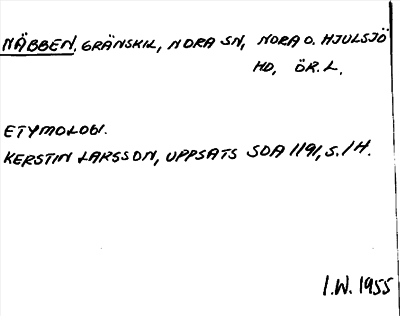 NÄBBEN, GRÄNSKIL, NORA SN, NORA O. HJULSJÖ
HD, ÖR. L.
ETYMOLOGI.
KERSTIN LARSSON, UPPSATS SOA 1191, S. 14.
I.W. 1955